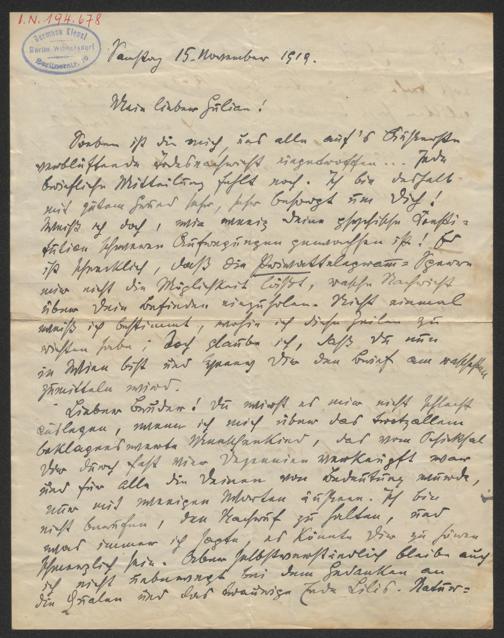 I.N. 194.678
Hermann Kienzl
Berlin-Wilmersdorf
Samstag 15. November 1919.
Mein lieber Julian!
Soeben ist die mich, uns alle auf's Äußerste
verblüffende Todesnachricht eingetroffen... Jede
briefliche Mitteilung fehlt noch. Ich bin deshalb
mit gutem Grund sehr, sehr besorgt um Dich!
Weiß ich doch, wie wenig Deine psychische Consti-
tution schweren Aufregungen gewachsen ist! Es
ist schrecklich, daß die Privattelegramm-Sperre
mir nicht die Möglichkeit läßt, rasche Nachricht
über Dein Befinden einzuholen. Nicht einmal
weiß ich bestimmt, wohin ich diese Zeilen zu
richten habe; doch glaube ich, daß Du nun
in Wien bist und Dir den Brief am raschesten
zumitteln wird.
Lieber Bruder! Du wirst es mir nicht schlecht
auslegen, wenn ich mich über das trotz allem
beklagenswerte Menschenkind, das vom Schicksal
Dir durch fast vier Dezennien verknüpft war
und für alle die Deinen von Bedeutung wurde,
nur mit wenigen Worten äußere. Ich bin
nicht berufen, den Nachruf zu halten, und
was immer ich sagte, es könnte Dir zu hören
schmerzlich sein. Aber selbstverständlich bleibe auch
ich nicht unbewegt bei dem Gedanken an
die Qualen und das traurige Ende Lilis. Natur-